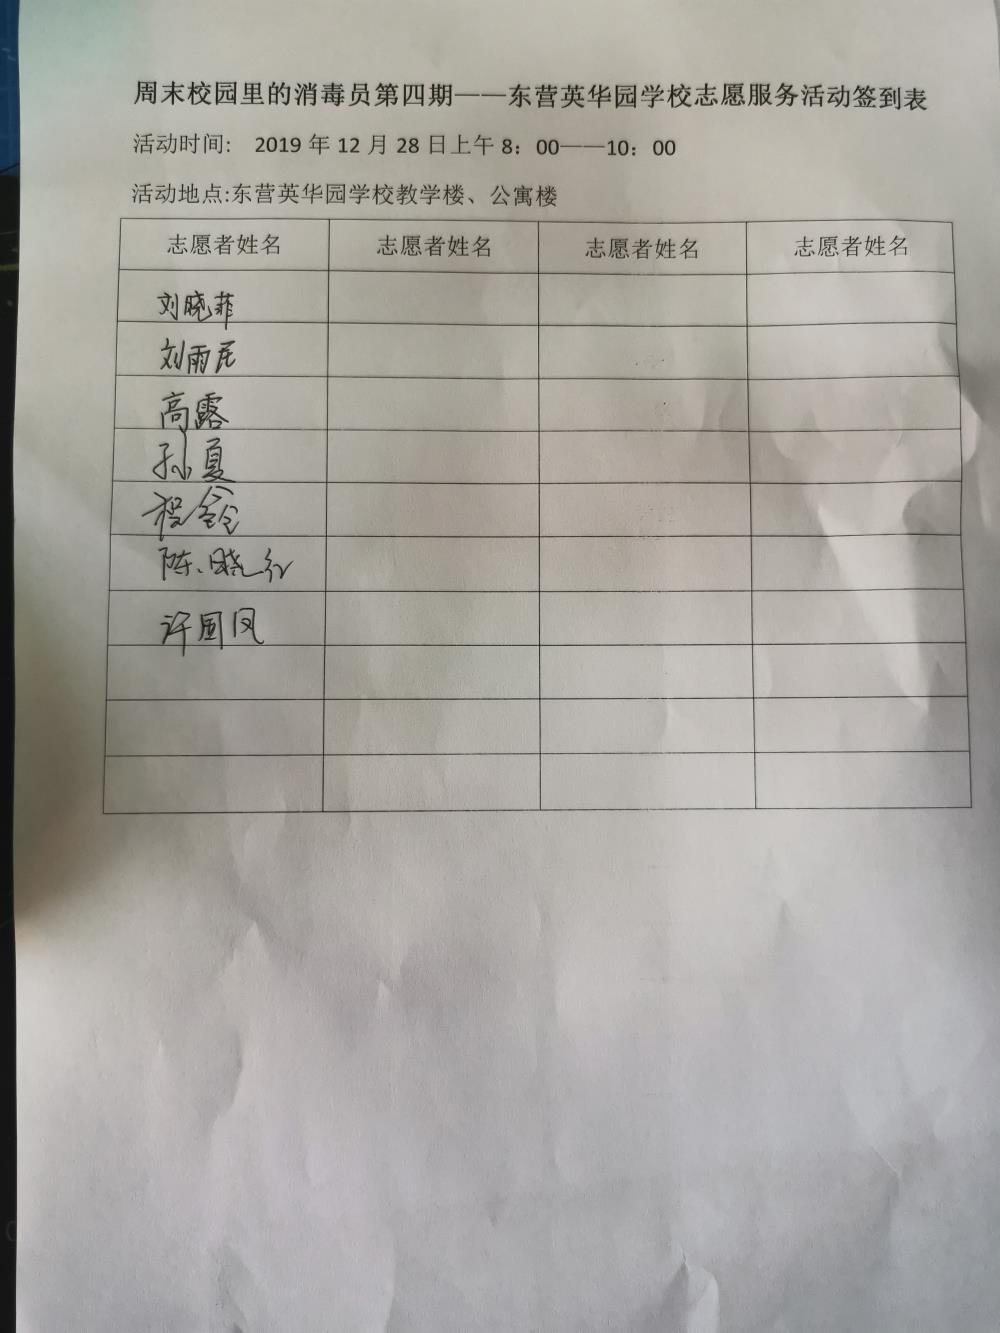 周末校园里的消毒员第四期——东营英华园学校志愿服务活动签到表
活动时间: 2019年12月28日上午8：00——10：00
活动地点:东营英华园学校教学楼、公寓楼
志愿者姓名 志愿者姓名 志愿者姓名 志愿者姓名
刘晓菲
刘雨民
高露
孙夏
程鑫
陈晓红
许国凤